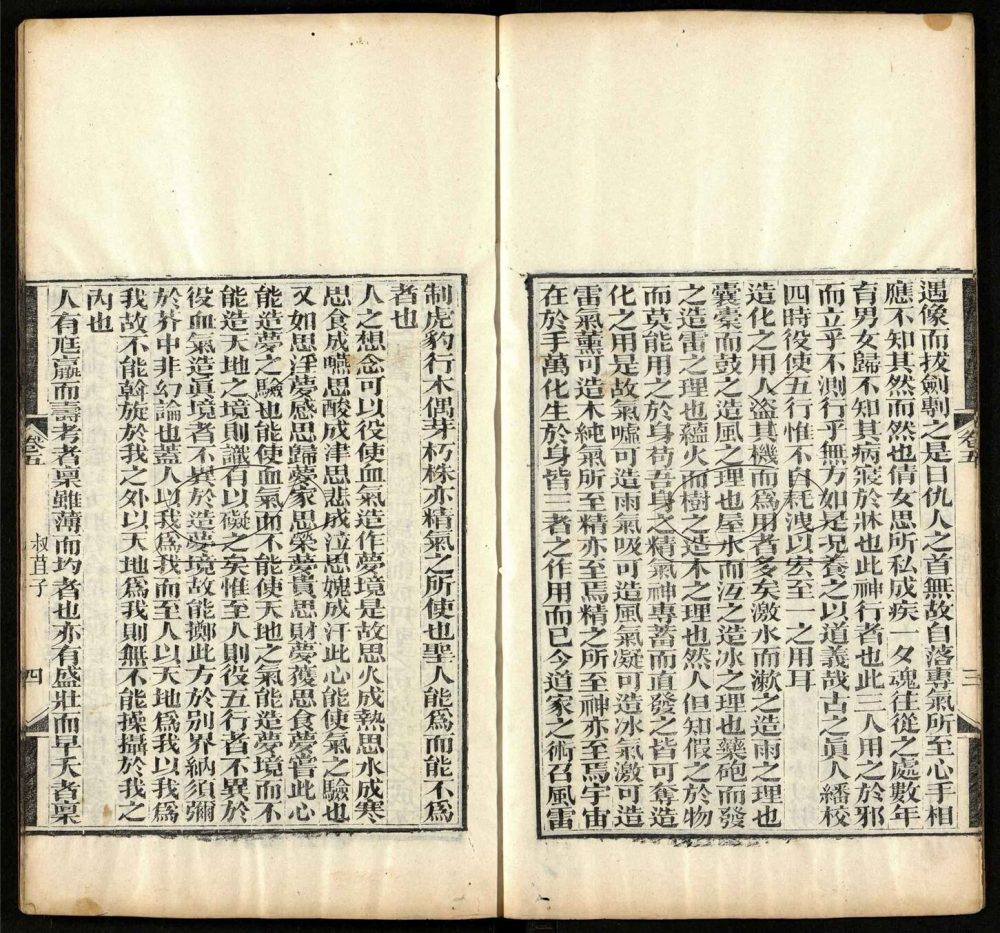 遇像而拔劍剚之是日仇人之首無故自落專氣所至心手相
應不知其然而然也倩女思所私成疾一夕魂往從之處數年
育男女歸不知其病寢於牀也此神行者也此三人用之於邪
而立乎不測行乎無方如是況養之以道義哉古之眞人繙校
四時役使五行惟不自耗洩以宏至一之用耳
造化之用人盜其機而爲用者多矣激水而漱之造雨之理也
囊橐而鼓之造風之理也屋水而沍之造冰之理也藥砲而發
之造雷之理也蘊火而樹之造木之理也然人但知假之於物
而莫能用之於身苟吾身之精氣神專蓄而直發之皆可奪造
化之用是故氣噓可造雨氣吸可造風氣凝可造冰氣激可造
雷氣熏可造木純氣所至精亦至焉精之所至神亦至焉宇宙
在於手萬化生於身皆三者之作用而已今道家之術召風雷
卷五
三
制虎豹行木偶芽朽株亦精氣之所使也聖人能爲而能不爲
者也
人之想念可以役使血氣造作夢境是故思火成熱思水成寒
思食成嚥思酸成津思悲成泣思媿成汗此心能使氣之驗也
又如思淫夢感思歸夢家思榮夢貴思財夢獲思食夢嘗此心
能造夢之驗也能使血氣而不能使天地之氣能造夢境而不
能造天地之境則識有以礙之矣惟至人則役五行者不異於
役血氣造眞境者不異於造夢境故能擲此方於別界納須彌
於芥中非幻論也蓋人以我爲我而至人以天地爲我以我爲
我故不能斡旋於我之外以天地爲我則無不能操攝於我之
內也
人有尫羸而壽考者稟雖薄而均者也亦有盛壯而早夭者稟
卷五
叔苴子
四